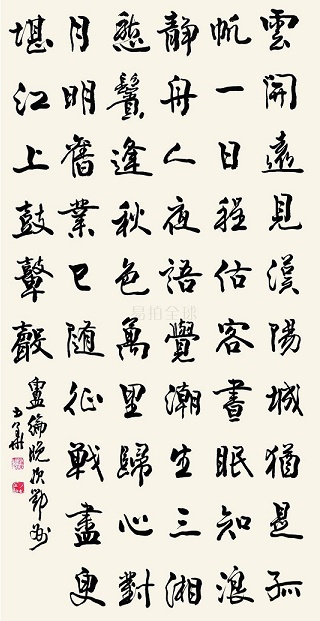 雲開遠見漢陽城猶是孤
帆一日程估客晝眠知浪
靜舟人夜語覺潮生三湘
愁鬢逢秋色萬里歸心對
月明舊業已随征戰盡更
堪江上鼓鼙聲
盧綸晚次鄂州
易拍全球